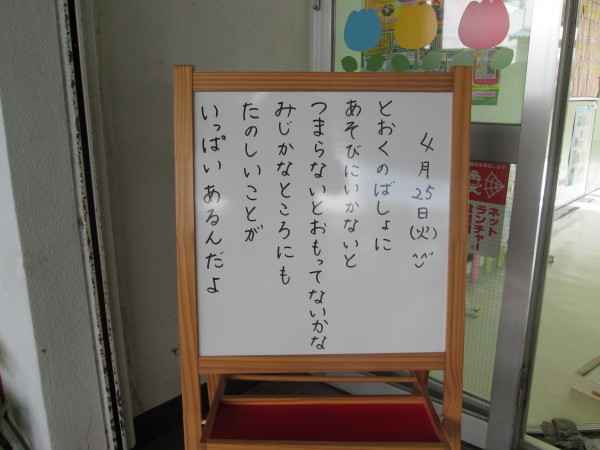 4月25日(火)
とおくのばしょに
あそびにいかないと
つまらないとおもってないかな
みじかなところにも
たのしいことが
いっぱいあるんだよ
ネット
ランチャー